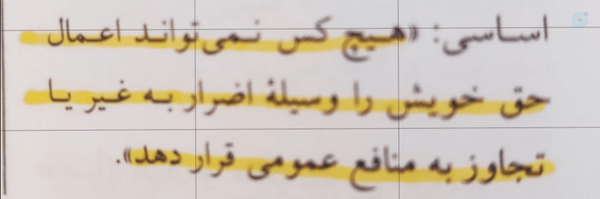 اساسی: «هیچ کس نمی‌تواند اعمال
حق خویش را وسیلهٔ اضرار به غیر یا
تجاوز به منافع عمومی قرار دهد».